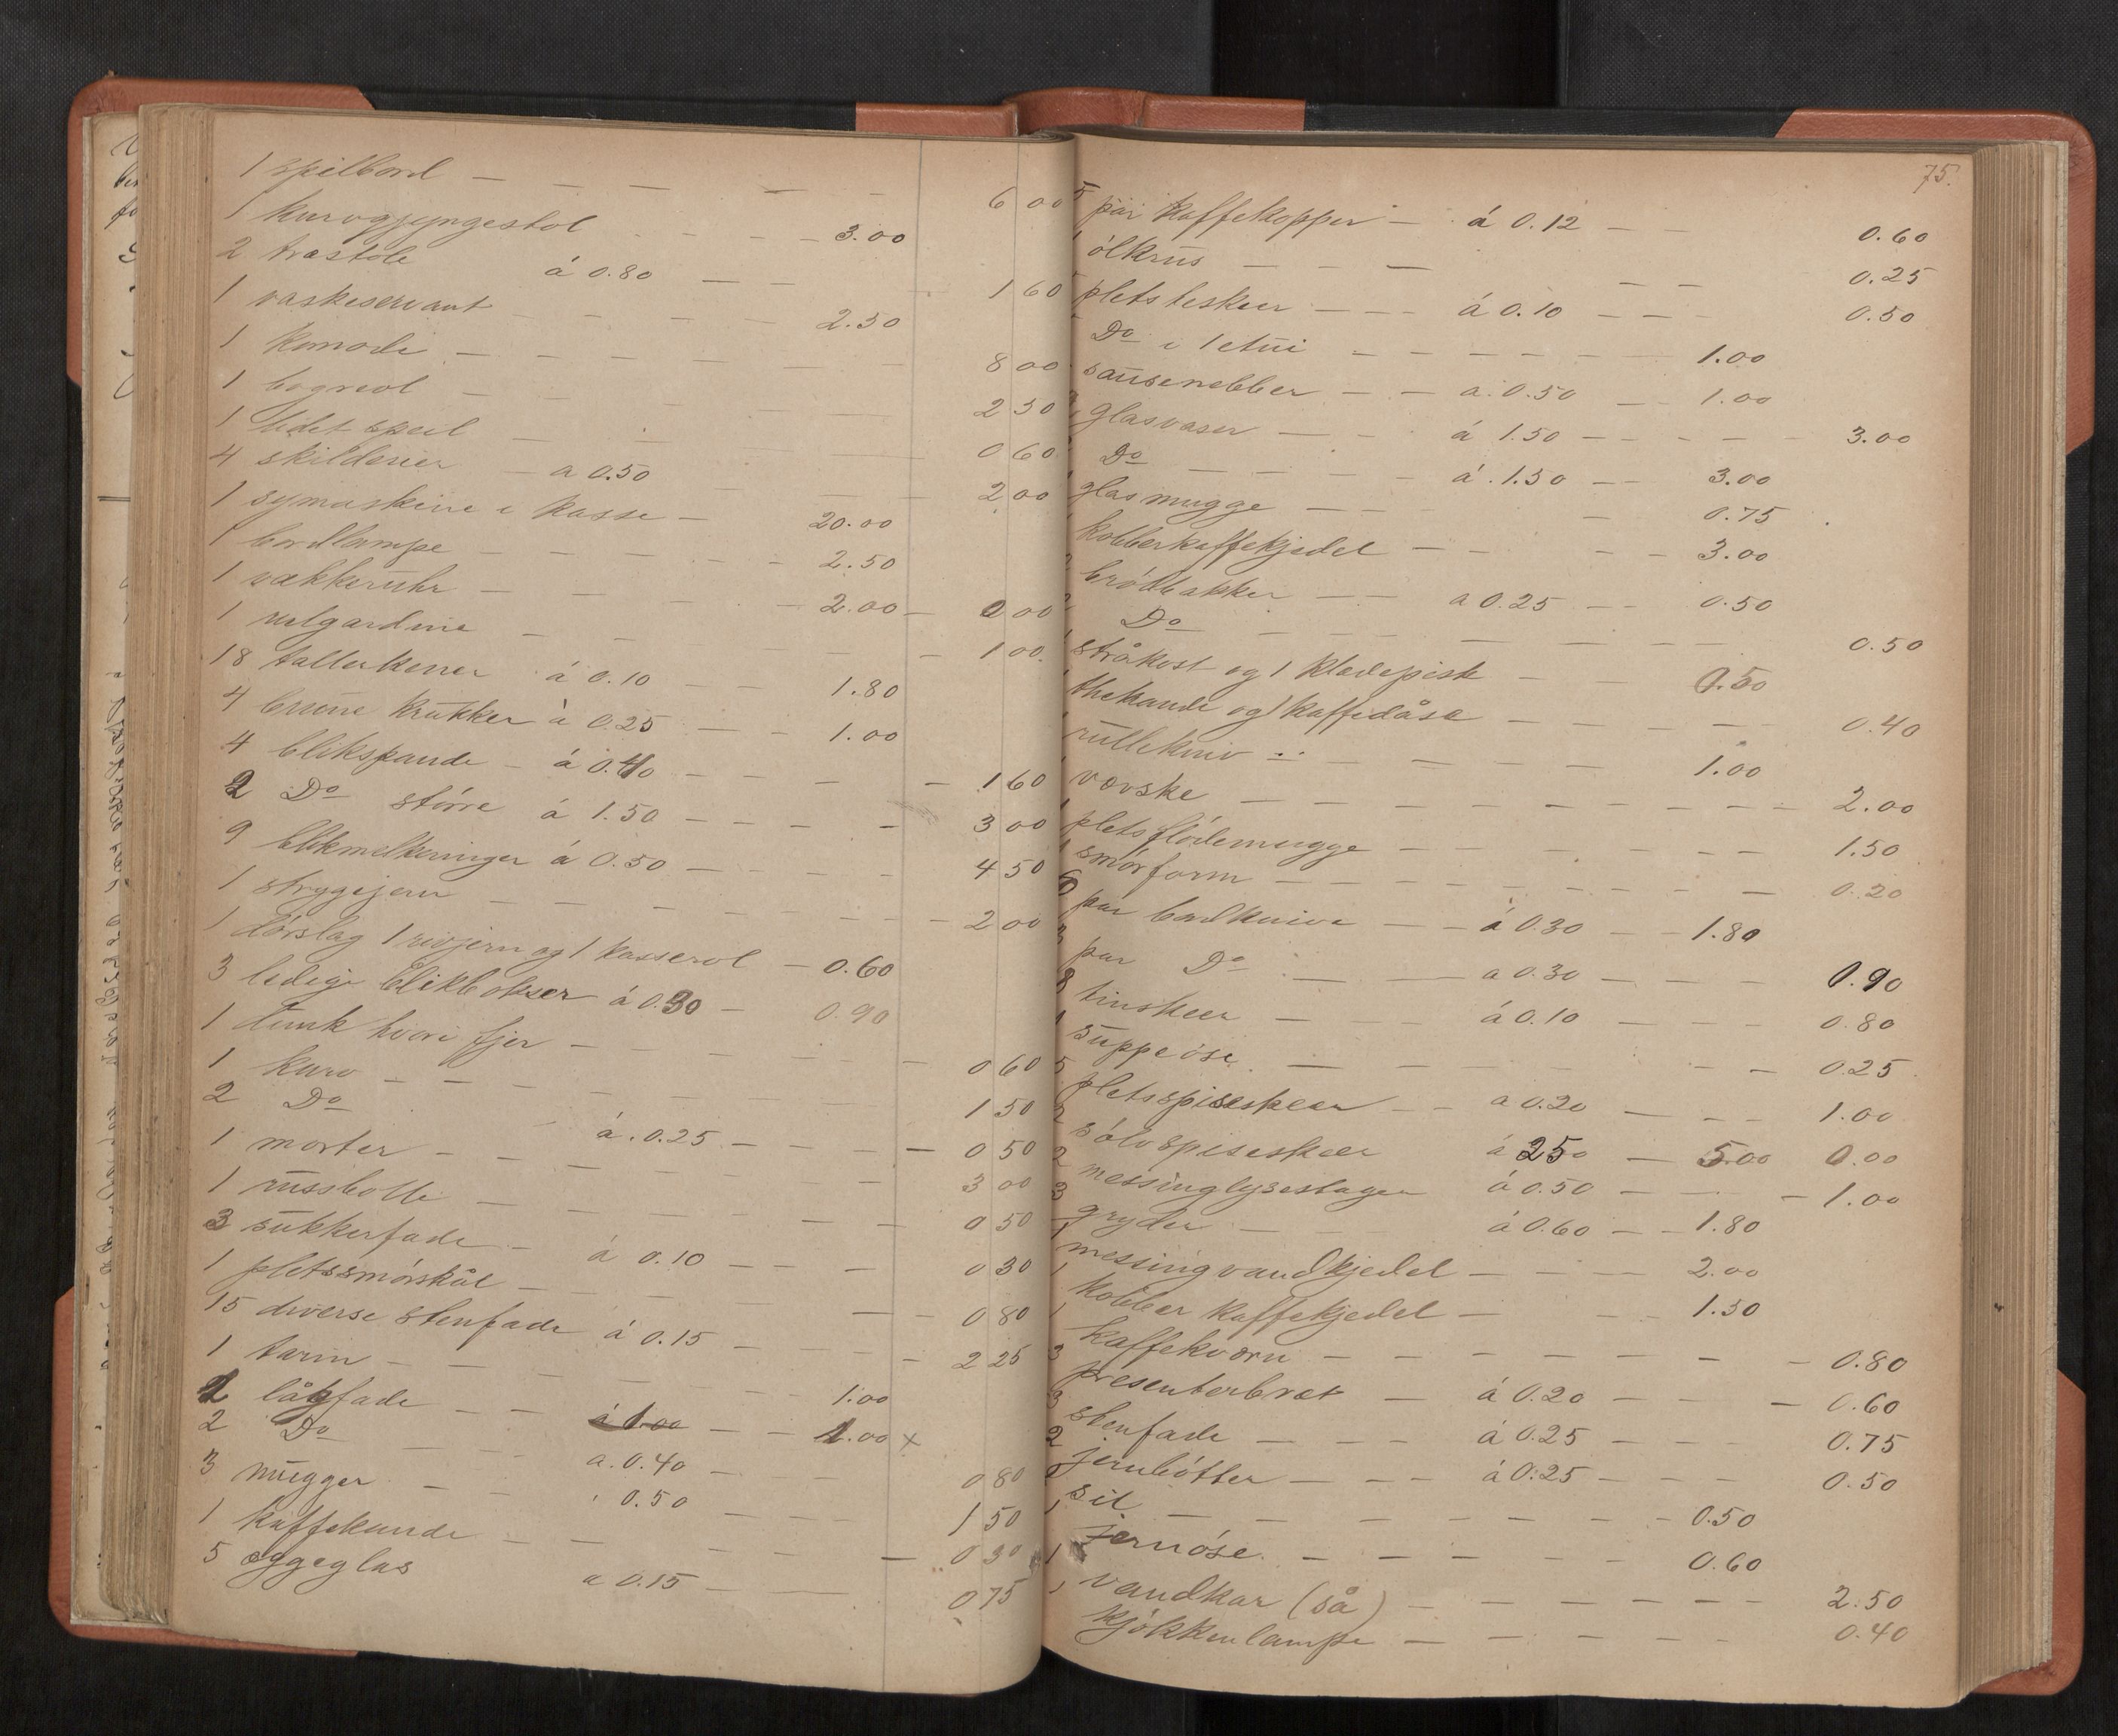 1 spilbord — — — — — 6 00
1 kurvgyngestol - - - - 3.00
2 træstole á 0.80 — — — 1 60
1 vaskeservant - - - - - 2.50
1 komode — — — — — 8 00
1 bogreol — — — — 2 50
1 lidet speil — — — 0 60
4 skilderier — a 0.50 — — — 2 00
1 symaskine i kasse — 20.00
1 bordlampe — — — — — 2.50
1 vækkeruhr — — — — — 2.00 — 0 00
1 rulgardine — — — — — 1 00
18 tallerkener á 0.10 — — 1.80
4 brune krukker à 0.25 — — 1.00
4 blikspande — á 0.40 — — — — 1 60
2 Do större á 1.50 — — — — 3 00
9 blikmelkeringer á 0.50 — — — — 4 50
1 strygejern — — — — — — — 2 00
1 dörslag 1 rivjern og 1 kasserol — 0.60
3 ledige blikbokser á 0.30 — 0.90
1 dunk hvori fjer — — — — — — 0 60
1 kurv — — — — — — 1 50
2 Do á. 0.25 — — — — 0 50
1 morter — — — — — — 3 00
1 — — — — — — 0 50
3 sukkerfade — á 0.10 — — — 0 30
1 pletssmörskål — — — — — 0 80
15 diverse stenfade á 0.15 — — — — 2 25
1 tarin — — — — — — 1.00
1 lågfade — — á 1.00 — — 1.00 x
2 Do — — a. 0.40 — — — 0 80
3 mugger — — 0.50 — — — 1 50
1 kaffekande — — — — — 0 30
5 eggeglas a 0.15 — — 0 75
75.
5 par kaffekopper — á 0.12 — — 0.60
1 ölkrus — — — — — 0.25
pletsteskeer — — — á 0.10 — — — 0.50
Do i 1 etui — — — — — — — 1.00
sausenebber — — a. 0.50 — 1.00
glasvaser — — á 1.50 — — — — — 3.00
Do — — — á. 1.50 — — 3.00
1 glasmugge — — — — 0.75
1 kobberkaffekjedel — — — — 3.00
2 brödbakker — — a 0.25 — — 0.50
Do — — — — — — 0.50
1 stråkost og 1 klædepisk — — 0.50
1 thekande og 1 kaffedåse — — — — 0.40
1 rullekniv — — — — — — 1.00
1 vævske — — — — — — — — — 2.00
1 plets flödemugge — — — — — — — 1.50
1 smörform — — — — — — — — — 0.20
6 par bordknive — — á 0.30 — — 1.80
3 par Do — — a 0.30 — — — 0.90
8 tinskeer — — — á 0.10 — — — 0.80
1 suppeöse — — — — — — — 0.25
5 pletsspiseskeer — — a 0.20 — — — 1.00
2 sölvspiseskeer á 250 — 5.00 0.00
2 messinglysestager á 0.50 — — — 1.00
3 gryder — — á 0.60 — — 1.80
1 messingvandkjedel — — — — 2.00
1 kobber kaffekjedel — — — 1.50
1 kaffekværn — — — — — — — — 0.80
3 presenterbræt — á 0.20 — — — 0.60
3 stenfade — — — á 0.25 — — — 0.75
2 jernbötter — — — á 0.25 — — — 0.50
1 sil — — — — — — — — 0.50
1 jernöse — — — — — — 0.60
1 vandkar (så) — — — — — — — 2.50
1 kjökkenlampe — — — — — 0.40